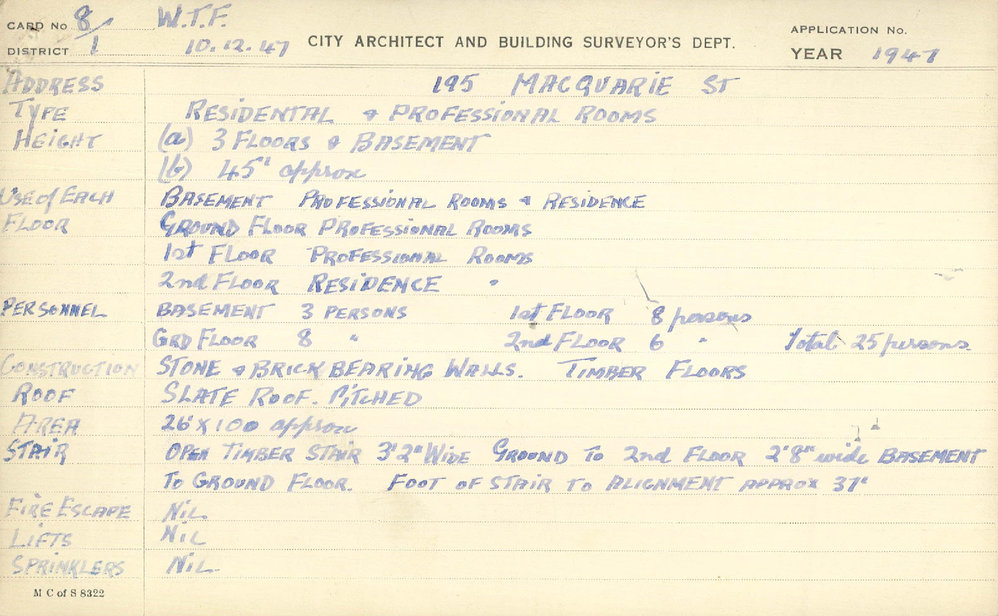 CARD No 8/1 W.T.F.
DISTRICT 10.12.47 CITY ARCHITECT AND BUILDING SURVEYOR'S DEPT. APPLICATION No.
YEAR 1947
ADDRESS 195 MACQUARIE ST
TYPE RESIDENTAL & PROFESSIONAL ROOMS
HEIGHT (a) 3 FLOORS & BASEMENT
(b) 45' approx
USE of EACH BASEMENT PROFESSIONAL ROOMS & RESIDENCE
FLOOR GROUND FLOOR PROFESSIONAL ROOMS
1st FLOOR PROFESSIONAL ROOMS
2nd FLOOR RESIDENCE "
PERSONNEL BASEMENT 3 PERSONS 1st FLOOR 8 persons
GRD FLOOR 8 " 2nd FLOOR 6 " Total 25 persons.
CONSTRUCTION STONE & BRICK BEARING WALLS. TIMBER FLOORS
ROOF SLATE ROOF. PITCHED
AREA 26' X 100 approx
STAIR OPEN TIMBER STAIR 3'2" WIDE GROUND TO 2nd FLOOR 2'8" wide BASEMENT
TO GROUND FLOOR. FOOT OF STAIR TO ALIGNMENT APPROX 37'
FIRE ESCAPE NIL.
LIFTS NIL
SPRINKLERS NIL.
M C of S 8322